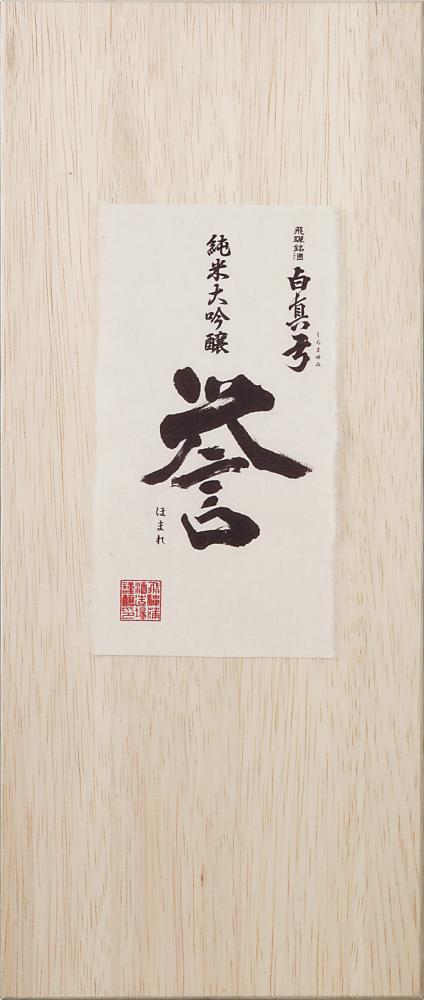 飛騨銘酒
白真弓
しらまゆみ
純米大吟醸
誉
ほまれ
飛騨蒲
酒造場
謹醸印